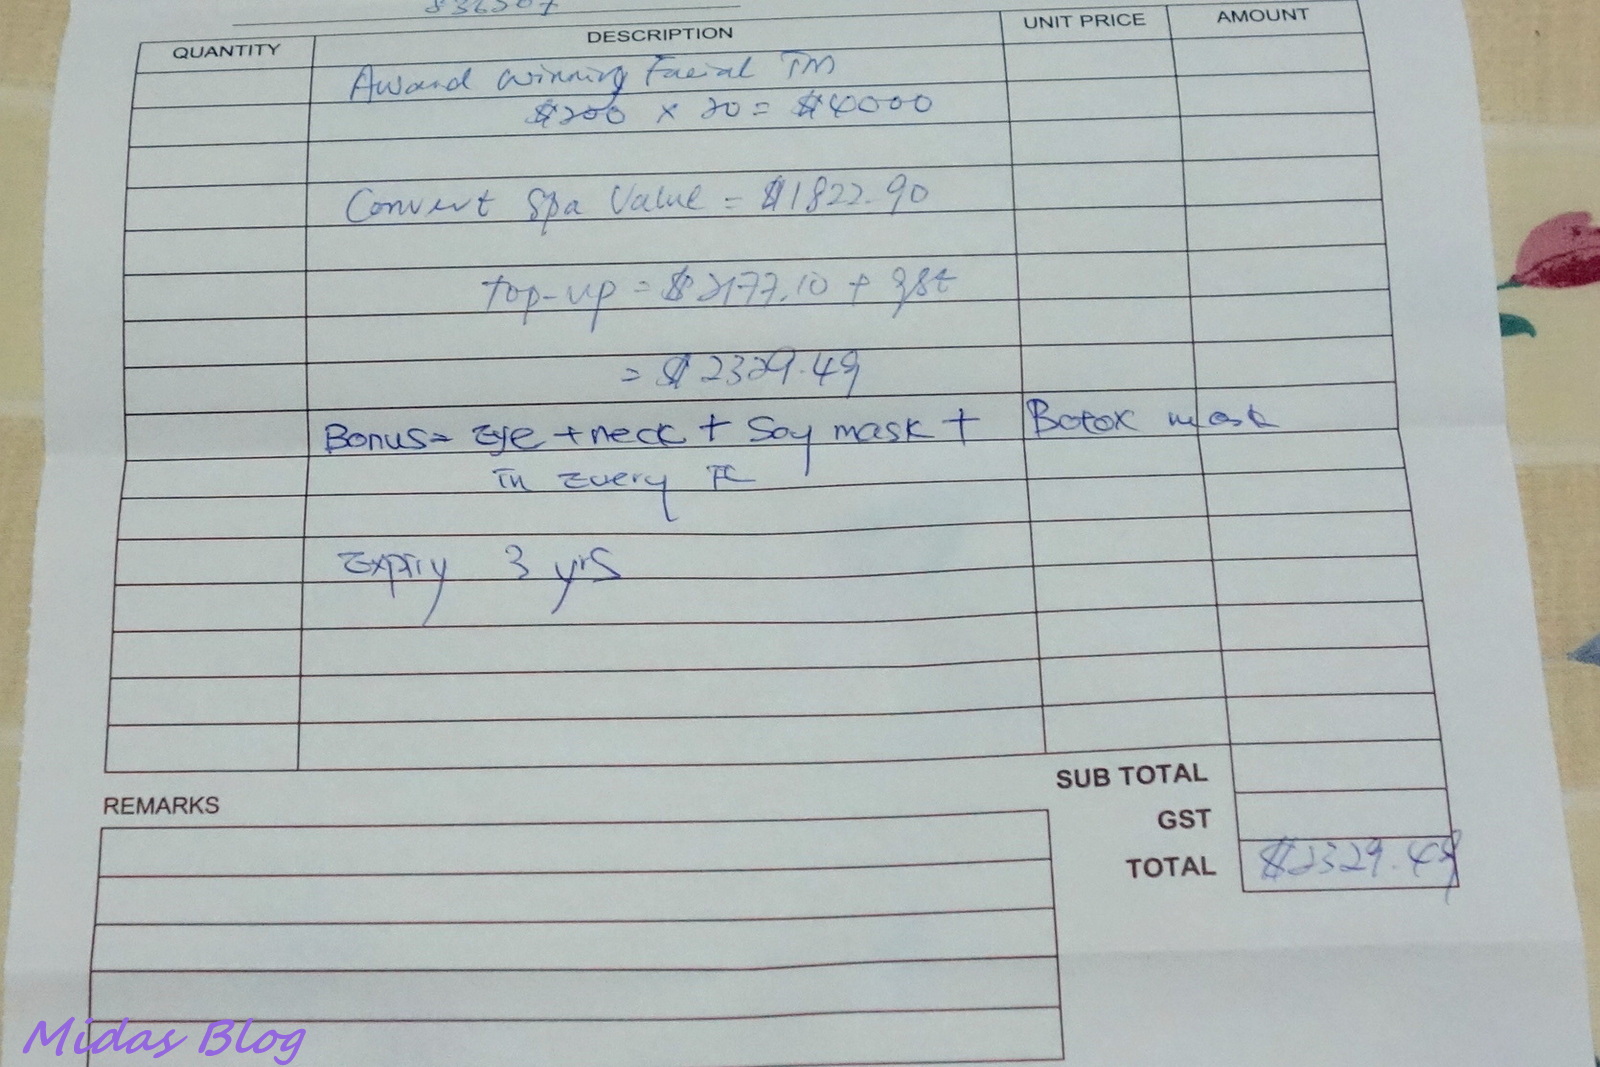 836507
QUANTITY DESCRIPTION UNIT PRICE AMOUNT
Award winning Facial Tm
$200 x 20 = $4000
Convert Spa Value = $1822.90
top-up = $2177.10 + gst
= $2329.49
Bonus = Eye + neck + Soy mask + Botox mask
in Every TC
Expiry 3 yrs
SUB TOTAL
REMARKS
GST
TOTAL $2329.49
Midas Blog